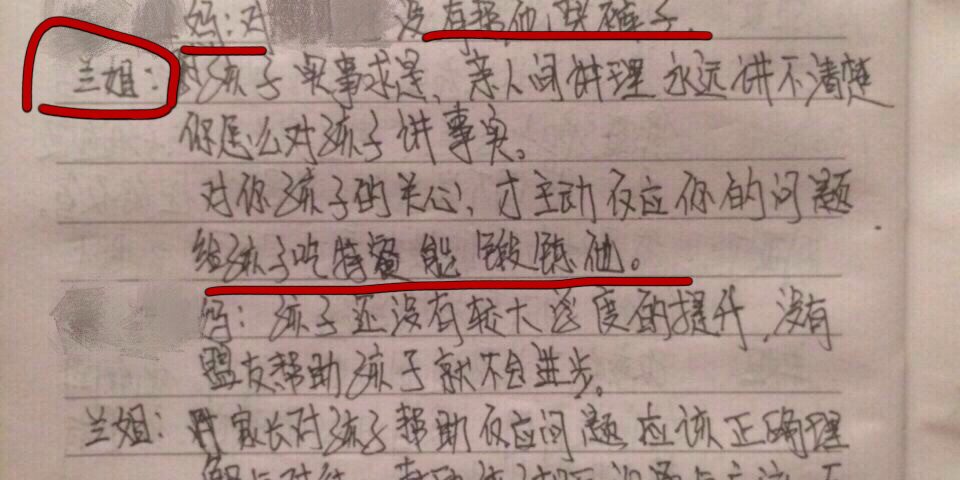 妈：对 没有帮他，跌裤子。
兰姐：对孩子实事求是，亲人间讲理永远讲不清楚
你怎么对孩子讲事实。
对你孩子的关心，才主动反应你的问题
给孩子吃特餐能锻炼他。
妈：孩子还没有较大程度的提升，没有
盟友帮助孩子就不会进步。
兰姐：对家长对孩子帮助反应问题应该正确理